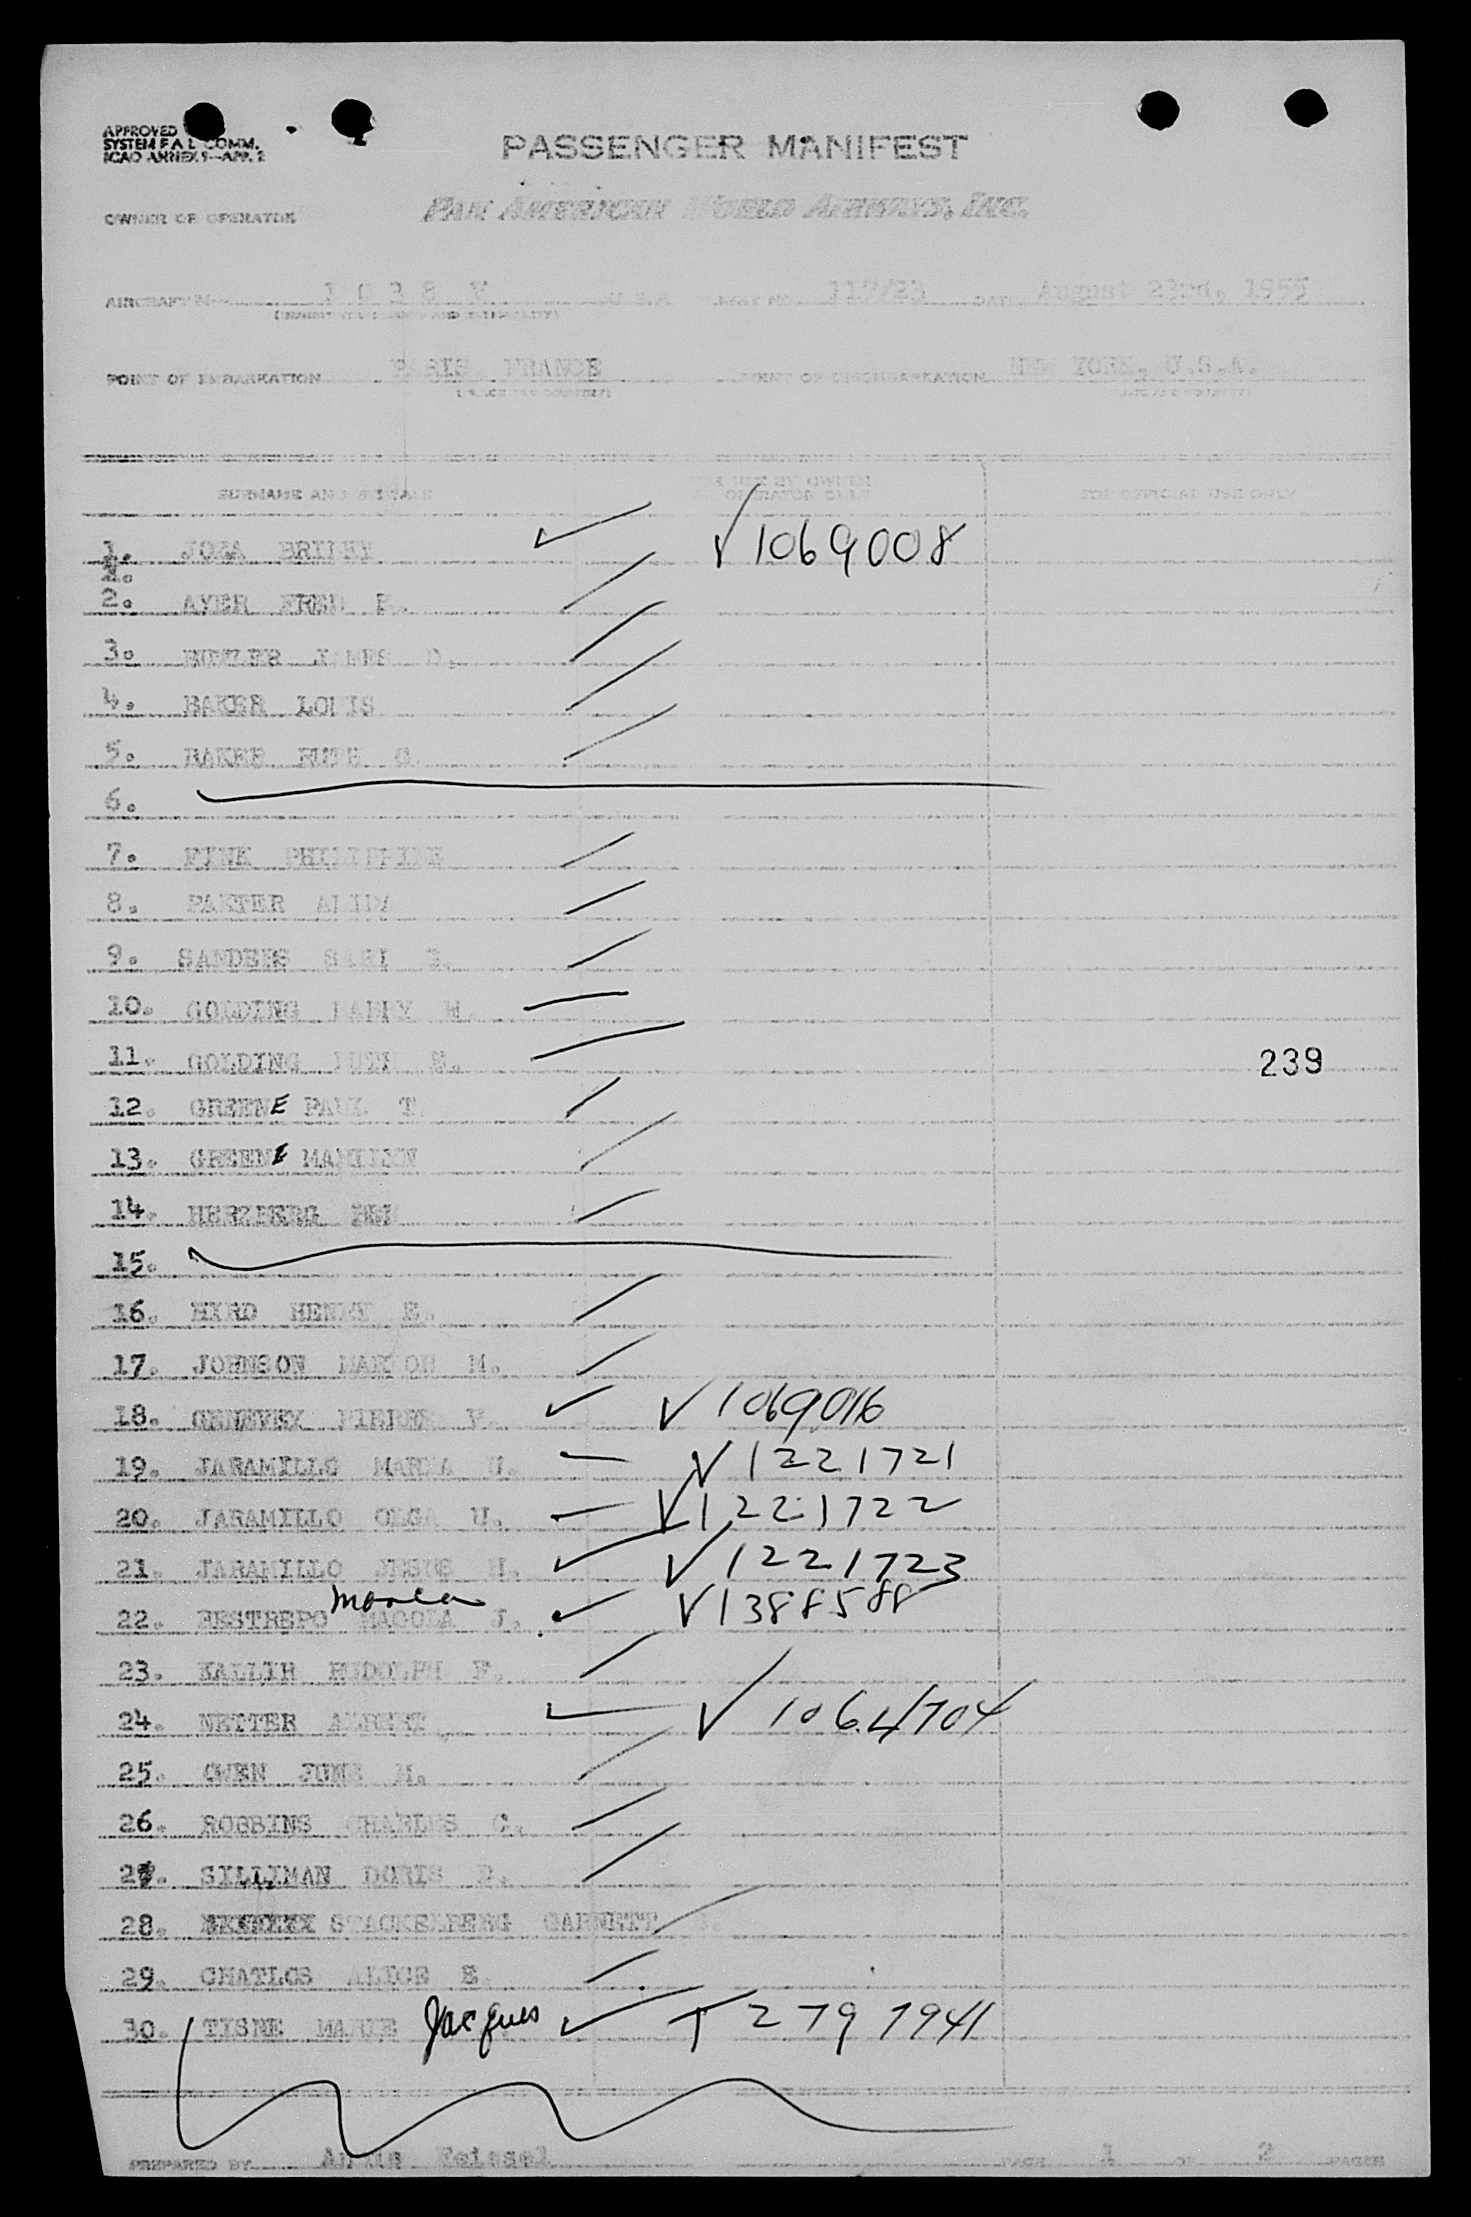 APPROVED
SYSTEM F A L COMM.
ICAO ANNEX 9—APP. 2
PASSENGER MANIFEST
OWNER OR OPERATOR
PAN AMERICAN WORLD AIRWAYS, INC.
AIRCRAFT N 1038 V U.S.A. 117/23 DATE August 23rd, 1955
POINT OF EMBARKATION PARIS FRANCE POINT OF DISEMBARKATION NEW YORK, U.S.A.
(PLACE AND COUNTRY)
SURNAME AND INITIALS
FOR USE BY OWNER
OR OPERATOR ONLY
FOR OFFICIAL USE ONLY
1. ✓ ✓ 1069008
2. AYER FRED
3.
4. BAKER LOUIS
5. BAKER RUTH
6.
7. FINK PHILIPPINE
8.
9. SANDERS
10. GOLDING HARRY
11. GOLDING RUTH S. 239
12. GREENE PAUL T
13. GREENE MARILYN
14. HERZBERG
15.
16. HIRD HENRY E.
17. JOHNSON MARION M.
18. PIERRE ✓ ✓ 1069016
19. JARAMILLO MARIA U. ✓ 1221721
20. JARAMILLO OLGA U. ✓ 1221722
21. JARAMILLO JESUS ✓ ✓ 1221723
22. RESTREPO J. ✓ ✓ 1388588
23. KALLIR RUDOLPH F.
24. NETTER ALBERT ✓ 1064704
25. OWEN JUNE M.
26. ROBBINS CHARLES C.
27. SILLIMAN DORIS
28. STACKELBERG GARNETT
29. CHATLOS ALICE E
30. TISNE MARIE Jacques ✓ T 2797941
PREPARED BY PAGE 1 OF 2 PAGES